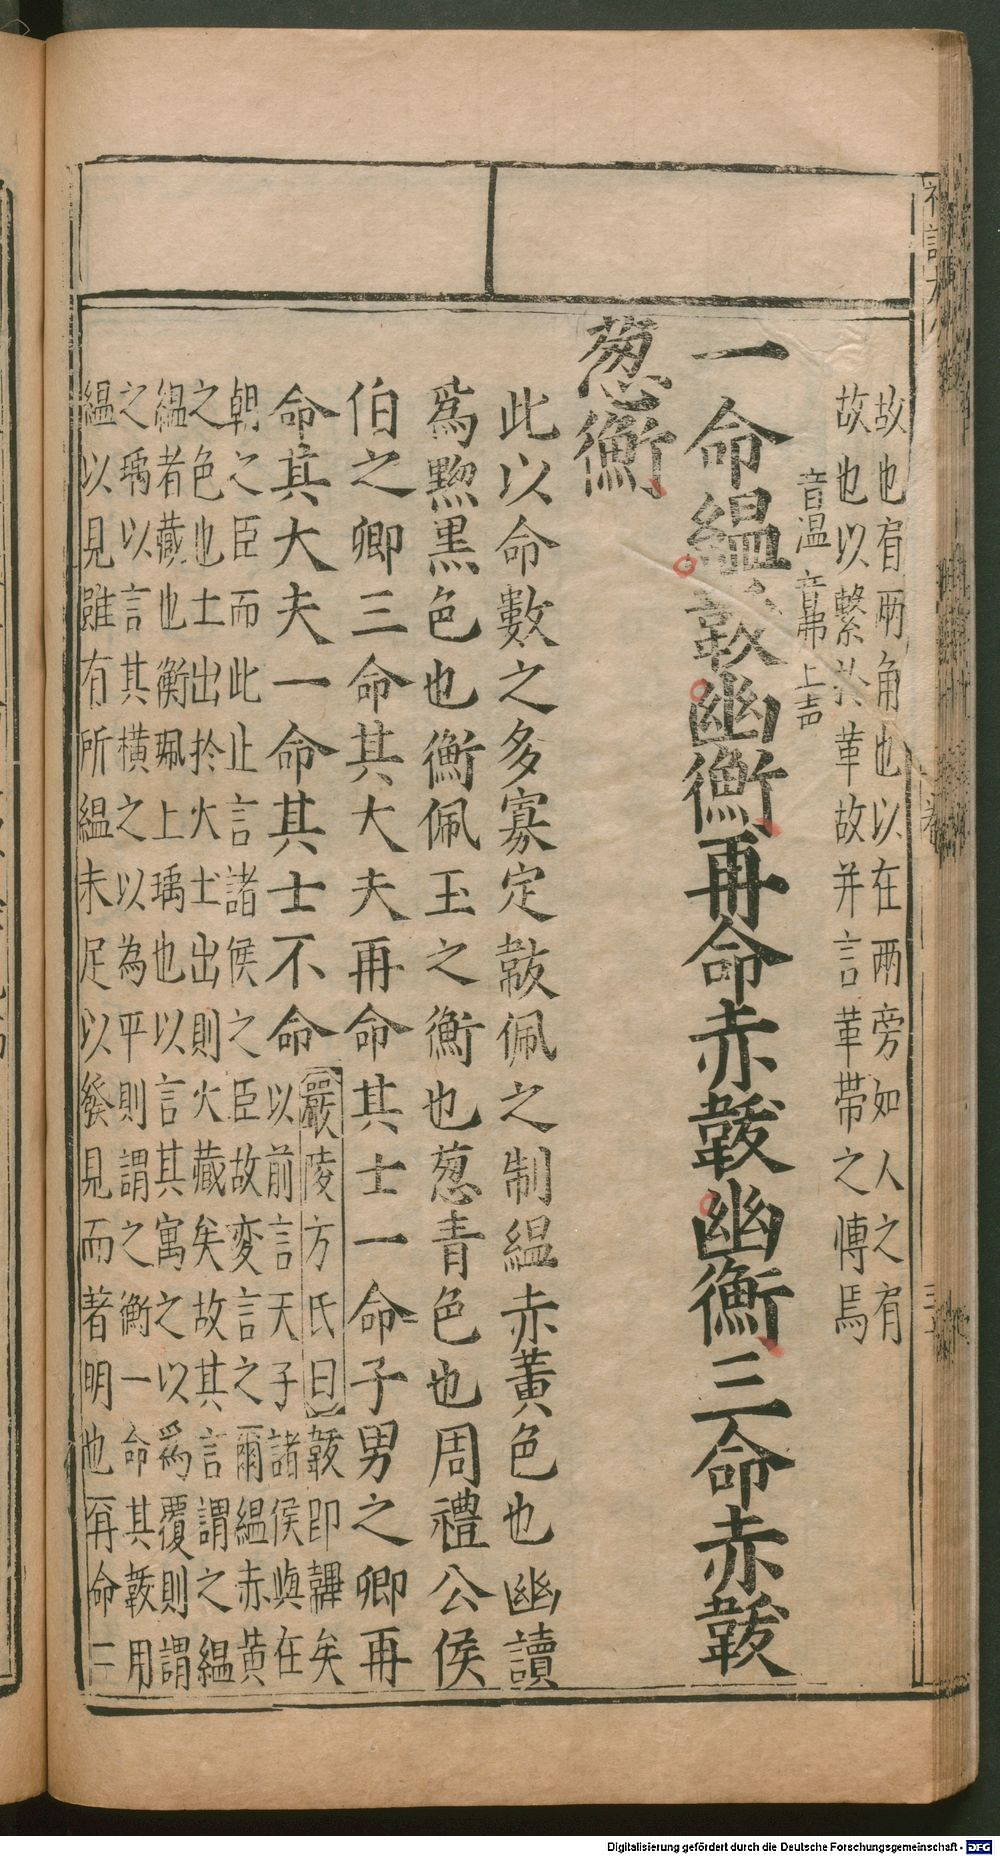 故也肩兩角也以在兩旁如人之有
故也以繫於革故并言革帶之博焉
音温 音弗 上声
一命緼韍幽衡再命赤韍幽衡三命赤韍
葱衡
此以命數之多寡定韍佩之制緼赤黃色也幽讀
爲黝黑色也衡佩玉之衡也葱青色也周禮公侯
伯之卿三命其大夫再命其士一命子男之卿再
命其大夫一命其士不命
嚴陵方氏曰韍即韠矣
以前言天子諸侯與在
朝之臣而此止言諸侯之臣故变言之爾緼赤黃
之色也士出於火士出則火藏矣故其言謂之緼
緼者藏也衡珮上瑀也以言其寓之以爲覆則謂
之瑀以言其橫之以為平則謂之衡一命其韍用
緼以見雖有所緼未足以發見而著明也再命二
Digitalisierung gefördert durch die Deutsche Forschungsgemeinschaft - DFG